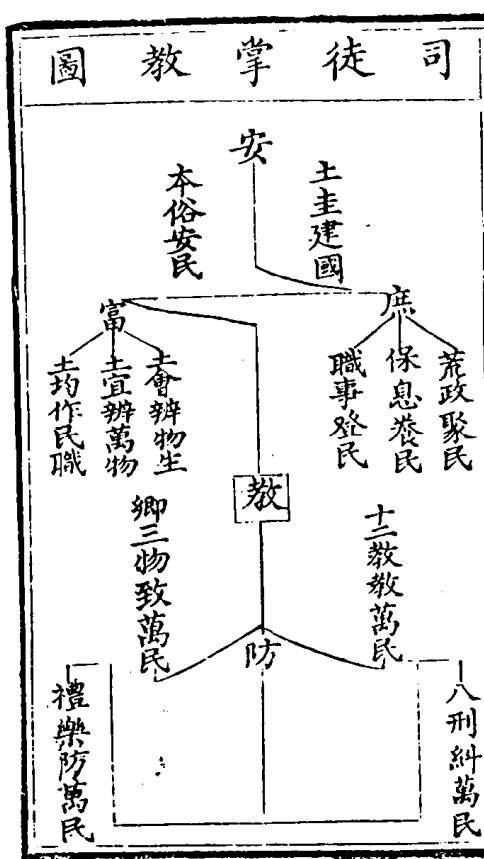 司徒掌教圖
安
土圭建國
本俗安民
庶
荒政聚民
保息養民
職事登民
富
土會辨物生
土宜辨萬物
土均作民職
教
十二教教萬民
鄉三物致萬民
防
八刑糾萬民
禮樂防萬民